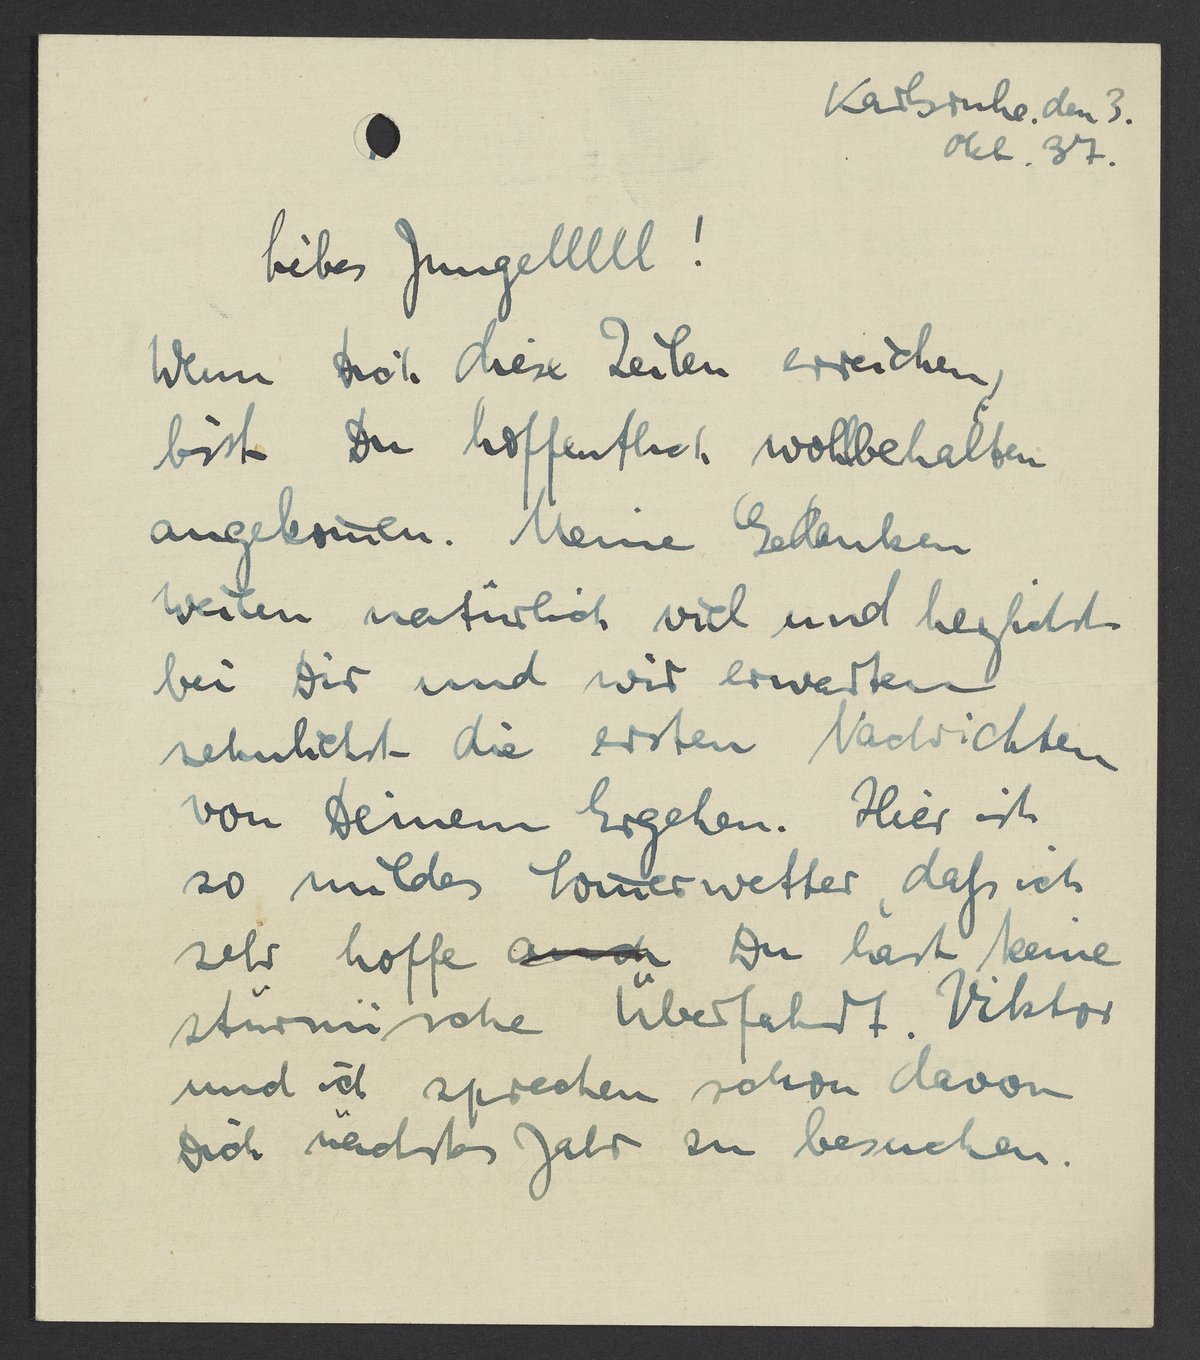 Karlsruhe, den 3.
Okt. 37.
Liebes Jungelllll!
Wenn Dich diese Zeilen erreichen,
bist Du hoffentlich wohlbehalten
angekom̄en. Meine Gedanken
weilen natürlich viel und herzlichst
bei Dir und wir erwarten
sehnlichst die ersten Nachrichten
von Deinem Ergehen. Hier ist
so mildes Som̄erwetter, daſs ich
sehr hoffe auch Du hast keine
stürmische Überfahrt. Viktor
und ich sprechen schon davon
Dich nächstes Jahr zu besuchen.